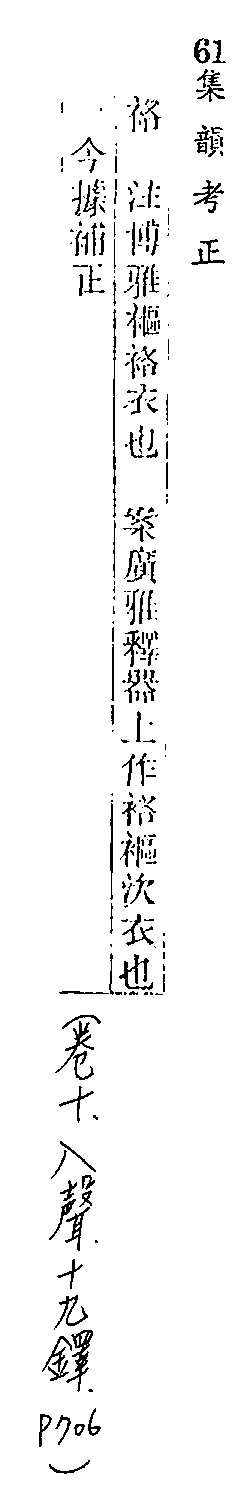 61集韻考正
袼　注博雅䙔袼衣也　案廣雅釋器上作袼䙔次衣也
今據補正
(卷十、入聲、十九鐸、P706)